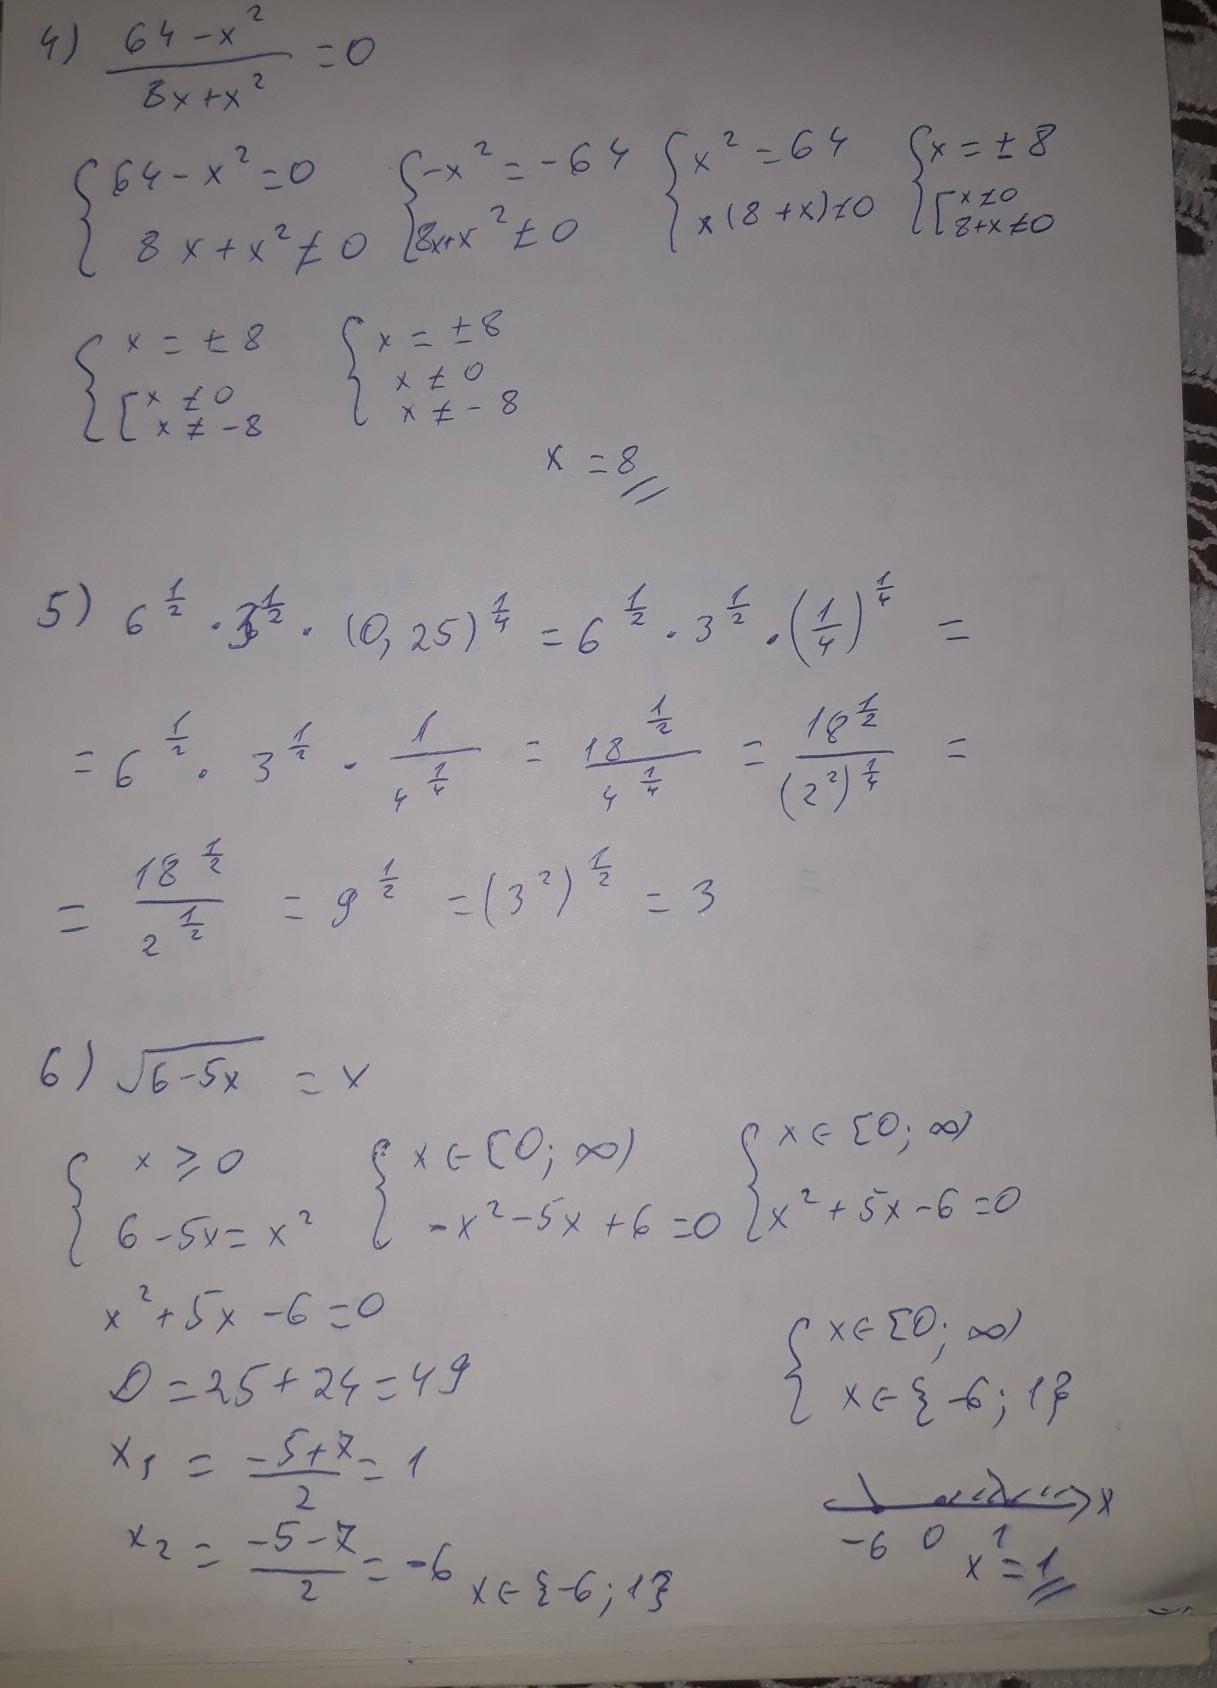 4) (64-x²)/(8x+x²) = 0
{64-x²=0 {-x²=-64 {x²=64 {x=±8
8x+x²≠0 8x+x²≠0 x(8+x)≠0 [x≠0
8+x≠0
{x=±8 {x=±8
[x≠0 x≠0
x≠-8 x≠-8
x=8
5) 6^(1/2) · 3^(1/2) · (0,25)^(1/4) = 6^(1/2) · 3^(1/2) · (1/4)^(1/4) =
= 6^(1/2) · 3^(1/2) · 1/4^(1/4) = 18^(1/2)/4^(1/4) = 18^(1/2)/(2²)^(1/4) =
= 18^(1/2)/2^(1/2) = 9^(1/2) = (3²)^(1/2) = 3
6) √(6-5x) = x
{x≥0 {x∈[0; ∞) {x∈[0; ∞)
6-5x=x² -x²-5x+6=0 x²+5x-6=0
x²+5x-6=0
D=25+24=49
x₁ = (-5+7)/2 = 1
x₂ = (-5-7)/2 = -6 x∈{-6; 1}
{x∈[0; ∞)
x∈{-6; 1}
x
-6 0 1
x=1